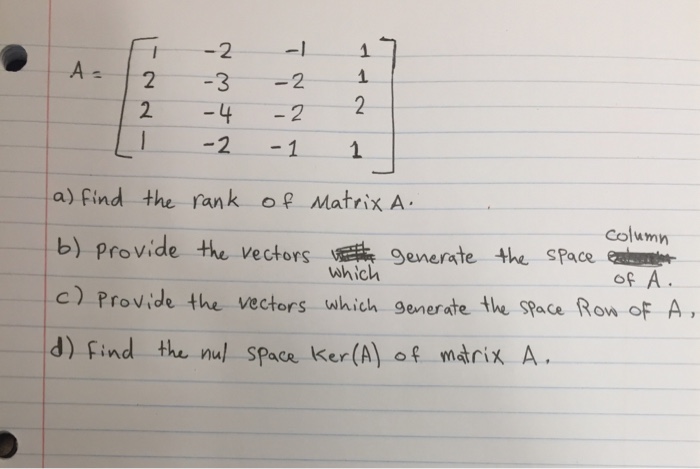 A = [ 1 -2 -1 1 ]
2 -3 -2 1
2 -4 -2 2
1 -2 -1 1
a) find the rank of Matrix A.
b) provide the vectors which generate the space column of A.
c) Provide the vectors which generate the space Row of A,
d) Find the nul space Ker(A) of matrix A.